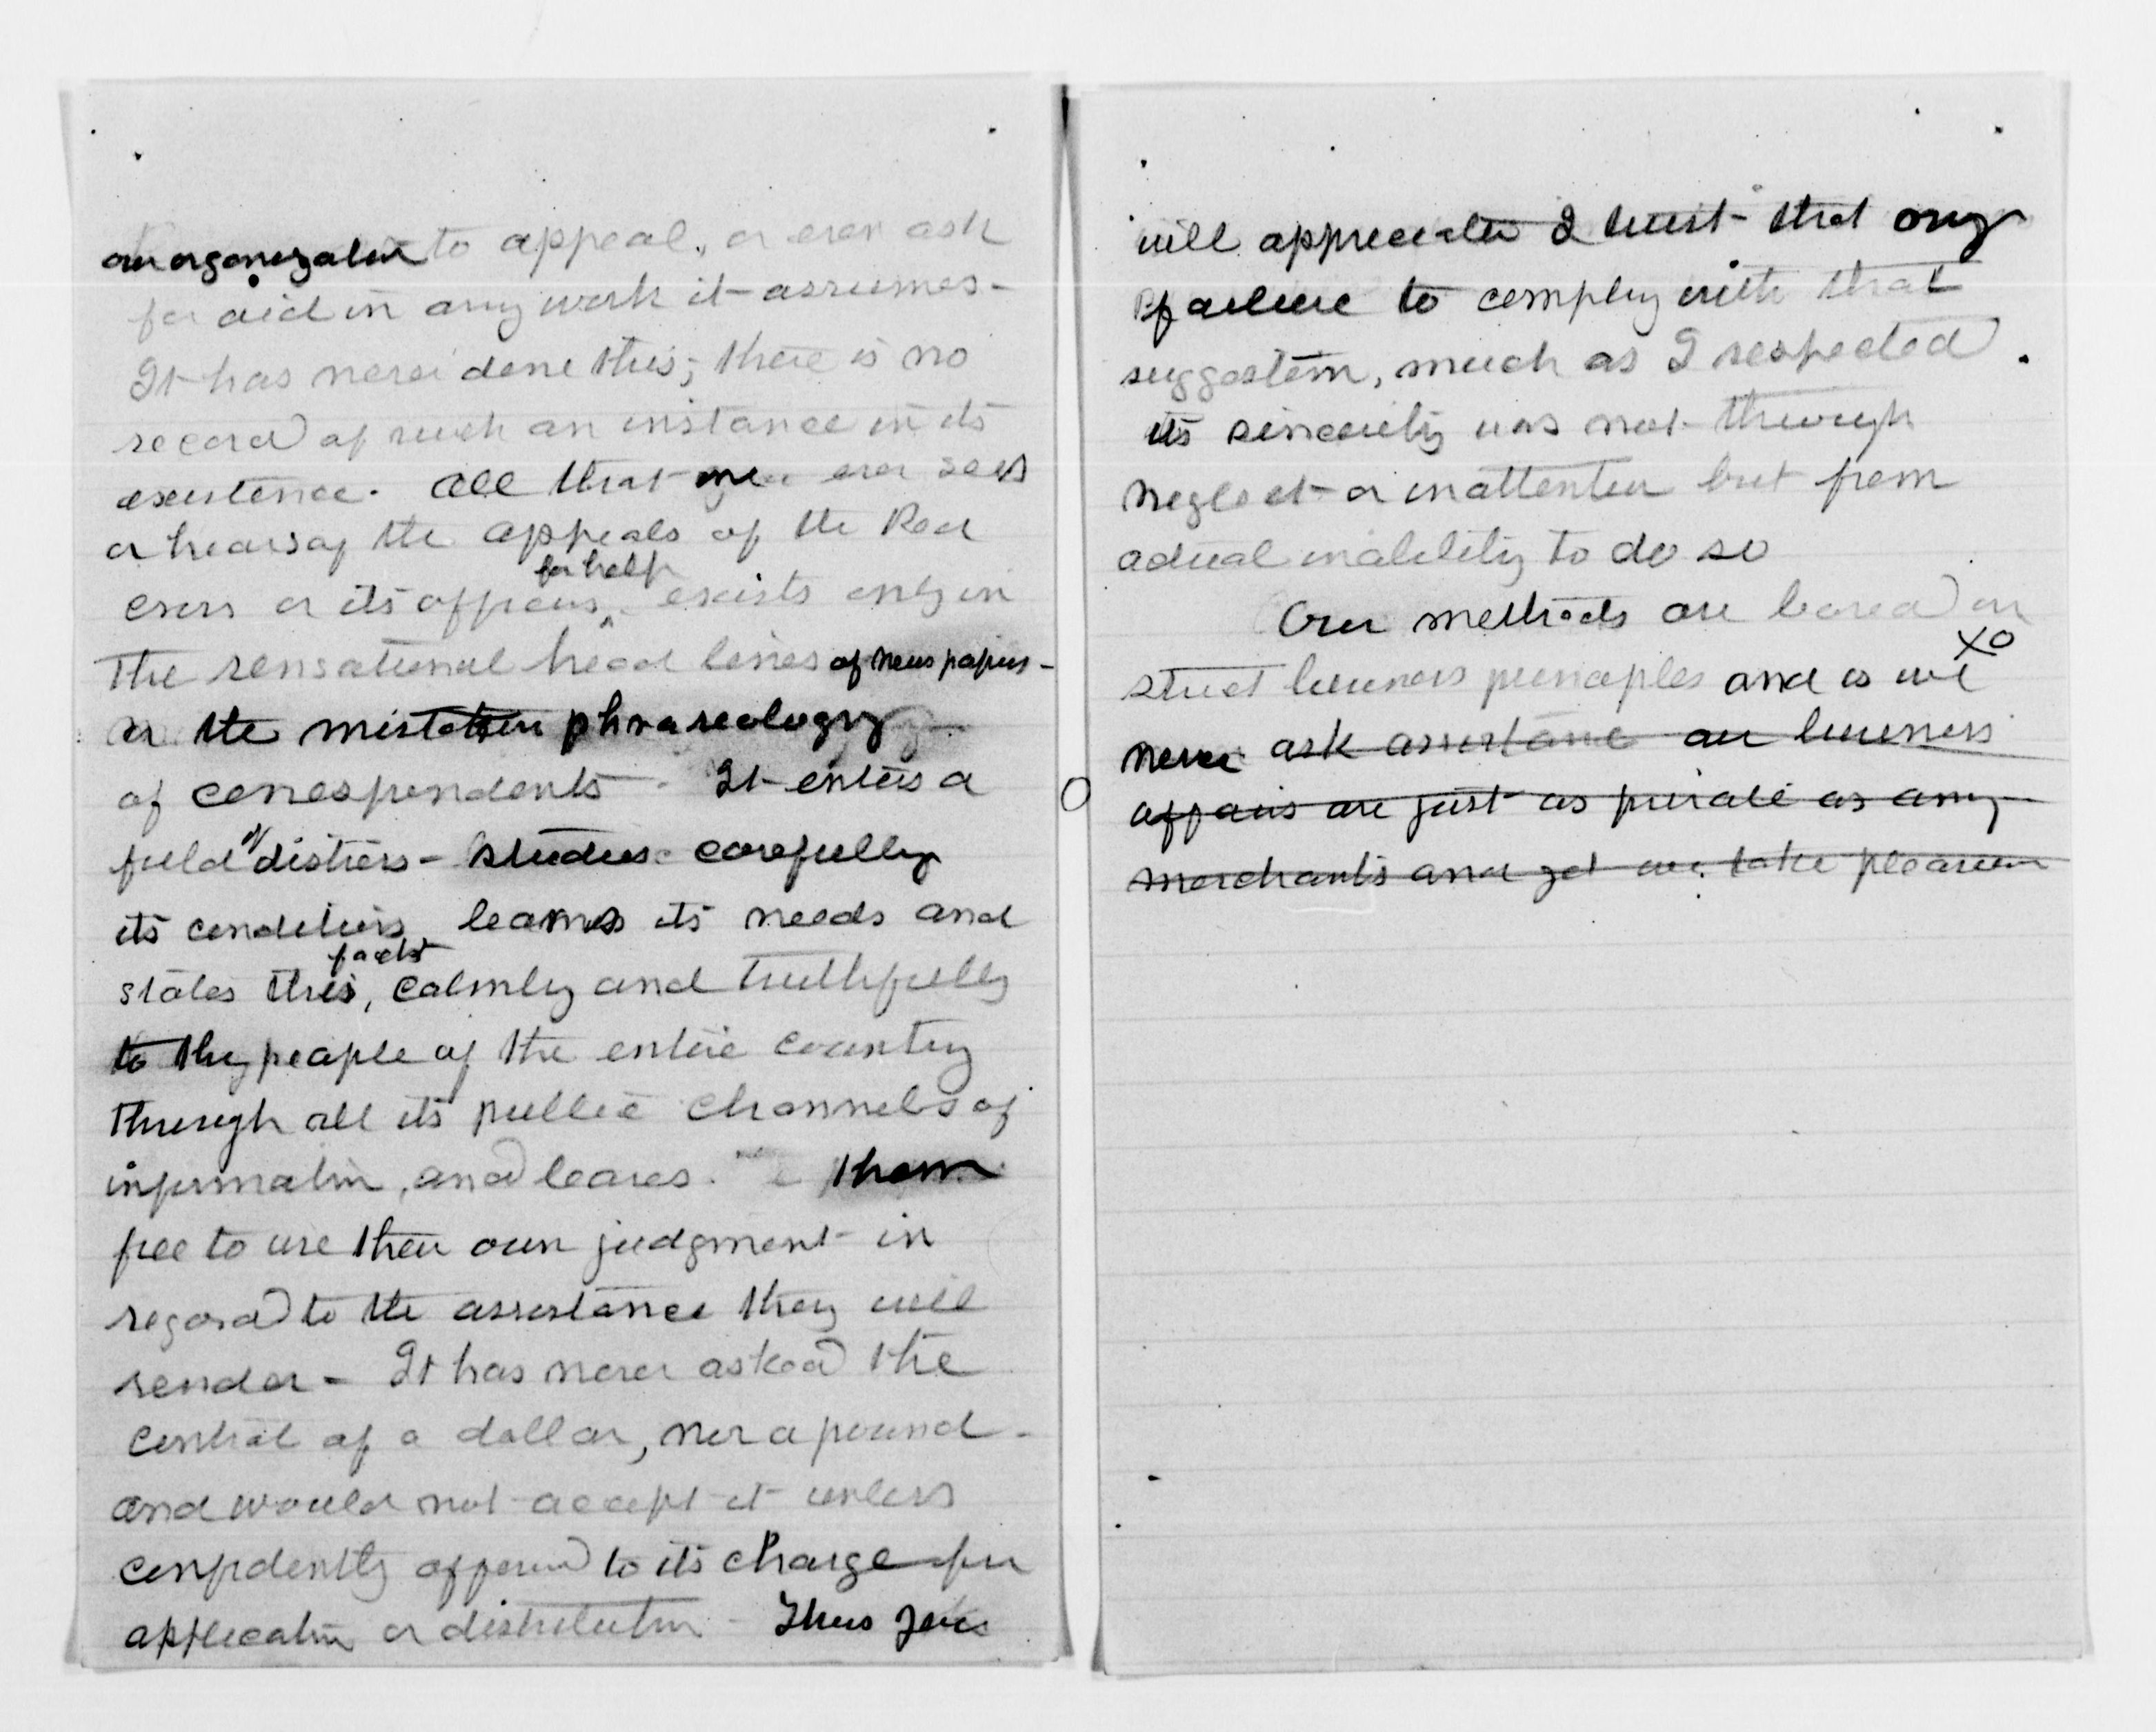 our organization to appeal, or even ask
for aid in any work it assumes -
It has never done this; there is no
record of such an instance in its
existence. All that one ever sees
or hears of the appeals of the Red
for help
Cross or its officers, exists only in
the sensational head lines of newspapers -
or the mistaken phraseology
of correspondents - It enters a
field of distress - studies carefully
its conditions, learns its needs and
facts
states this, calmly and truthfully
to the people of the entire country
through all its public channels of
information, and leaves them
free to use their own judgment in
regard to the assistance they will
render - It has never asked the
control of a dollar, nor a pound -
and would not accept it unless
confidently offered to its charge for
application or distribution - Thus you
will appreciate I trust that any
failure to comply with that
suggestion, much as I respected
its sincerity was not through
neglect or inattention but from
actual inability to do so
Our methods are based on
XO
strict business principles and as we
never ask assistance our business
affairs are just as private as any
merchants and yet we take pleasure